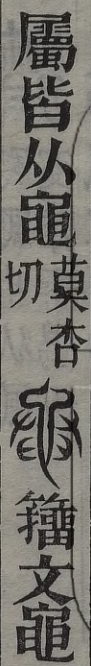 屬皆从黽莫杏切籀文黽